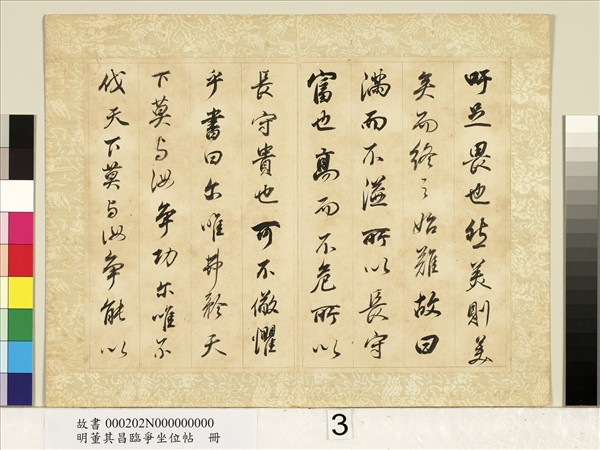 吁足畏也然美則美
矣而終之始難故曰
滿而不溢所以長守
富也高而不危所以
長守貴也可不儆懼
乎書曰尔唯弗矜天
下莫与汝爭功尔唯不
伐天下莫与汝爭能以
故書 000202N000000000
明董其昌臨爭坐位帖 冊
3